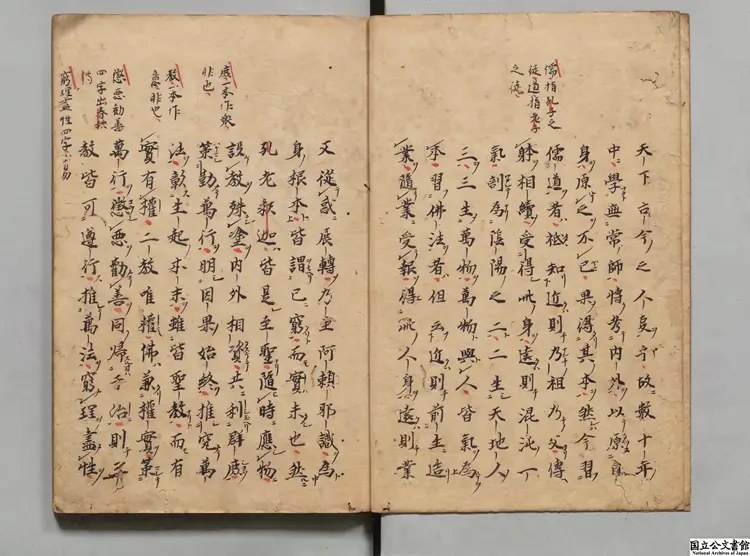 儒指孔子之
徒道指老子
之徒
天下古今之人事乎故數十年
中學無常師博考內外以原自
身原之不已果得其本然今習
儒道者祗知近則乃祖乃父傳
躰相續受得此身遠則混沌一
氣剖為陰陽之二二生天地人
三三生萬物萬物與人皆氣為
本習佛法者但云近則前生造
業隨業受報得此人身遠則業
庶一本作衆
非也
教一本作
意非也
懲惡勸善
四字出春秋
傳
窮理盡性四字易
又從惑展轉乃至阿賴耶識為
身根本皆謂已窮而實未也然
孔老釋迦皆是至聖隨時應物
設教殊塗内外相資共利群庶
策勤萬行明因果始終推究萬
法彰生起本末雖皆聖教而有
實有權二教唯權佛兼權實策
萬行懲惡勸善同歸于治則三
教皆可遵行推萬法窮理盡性
国立公文書館
National Archives of Japan